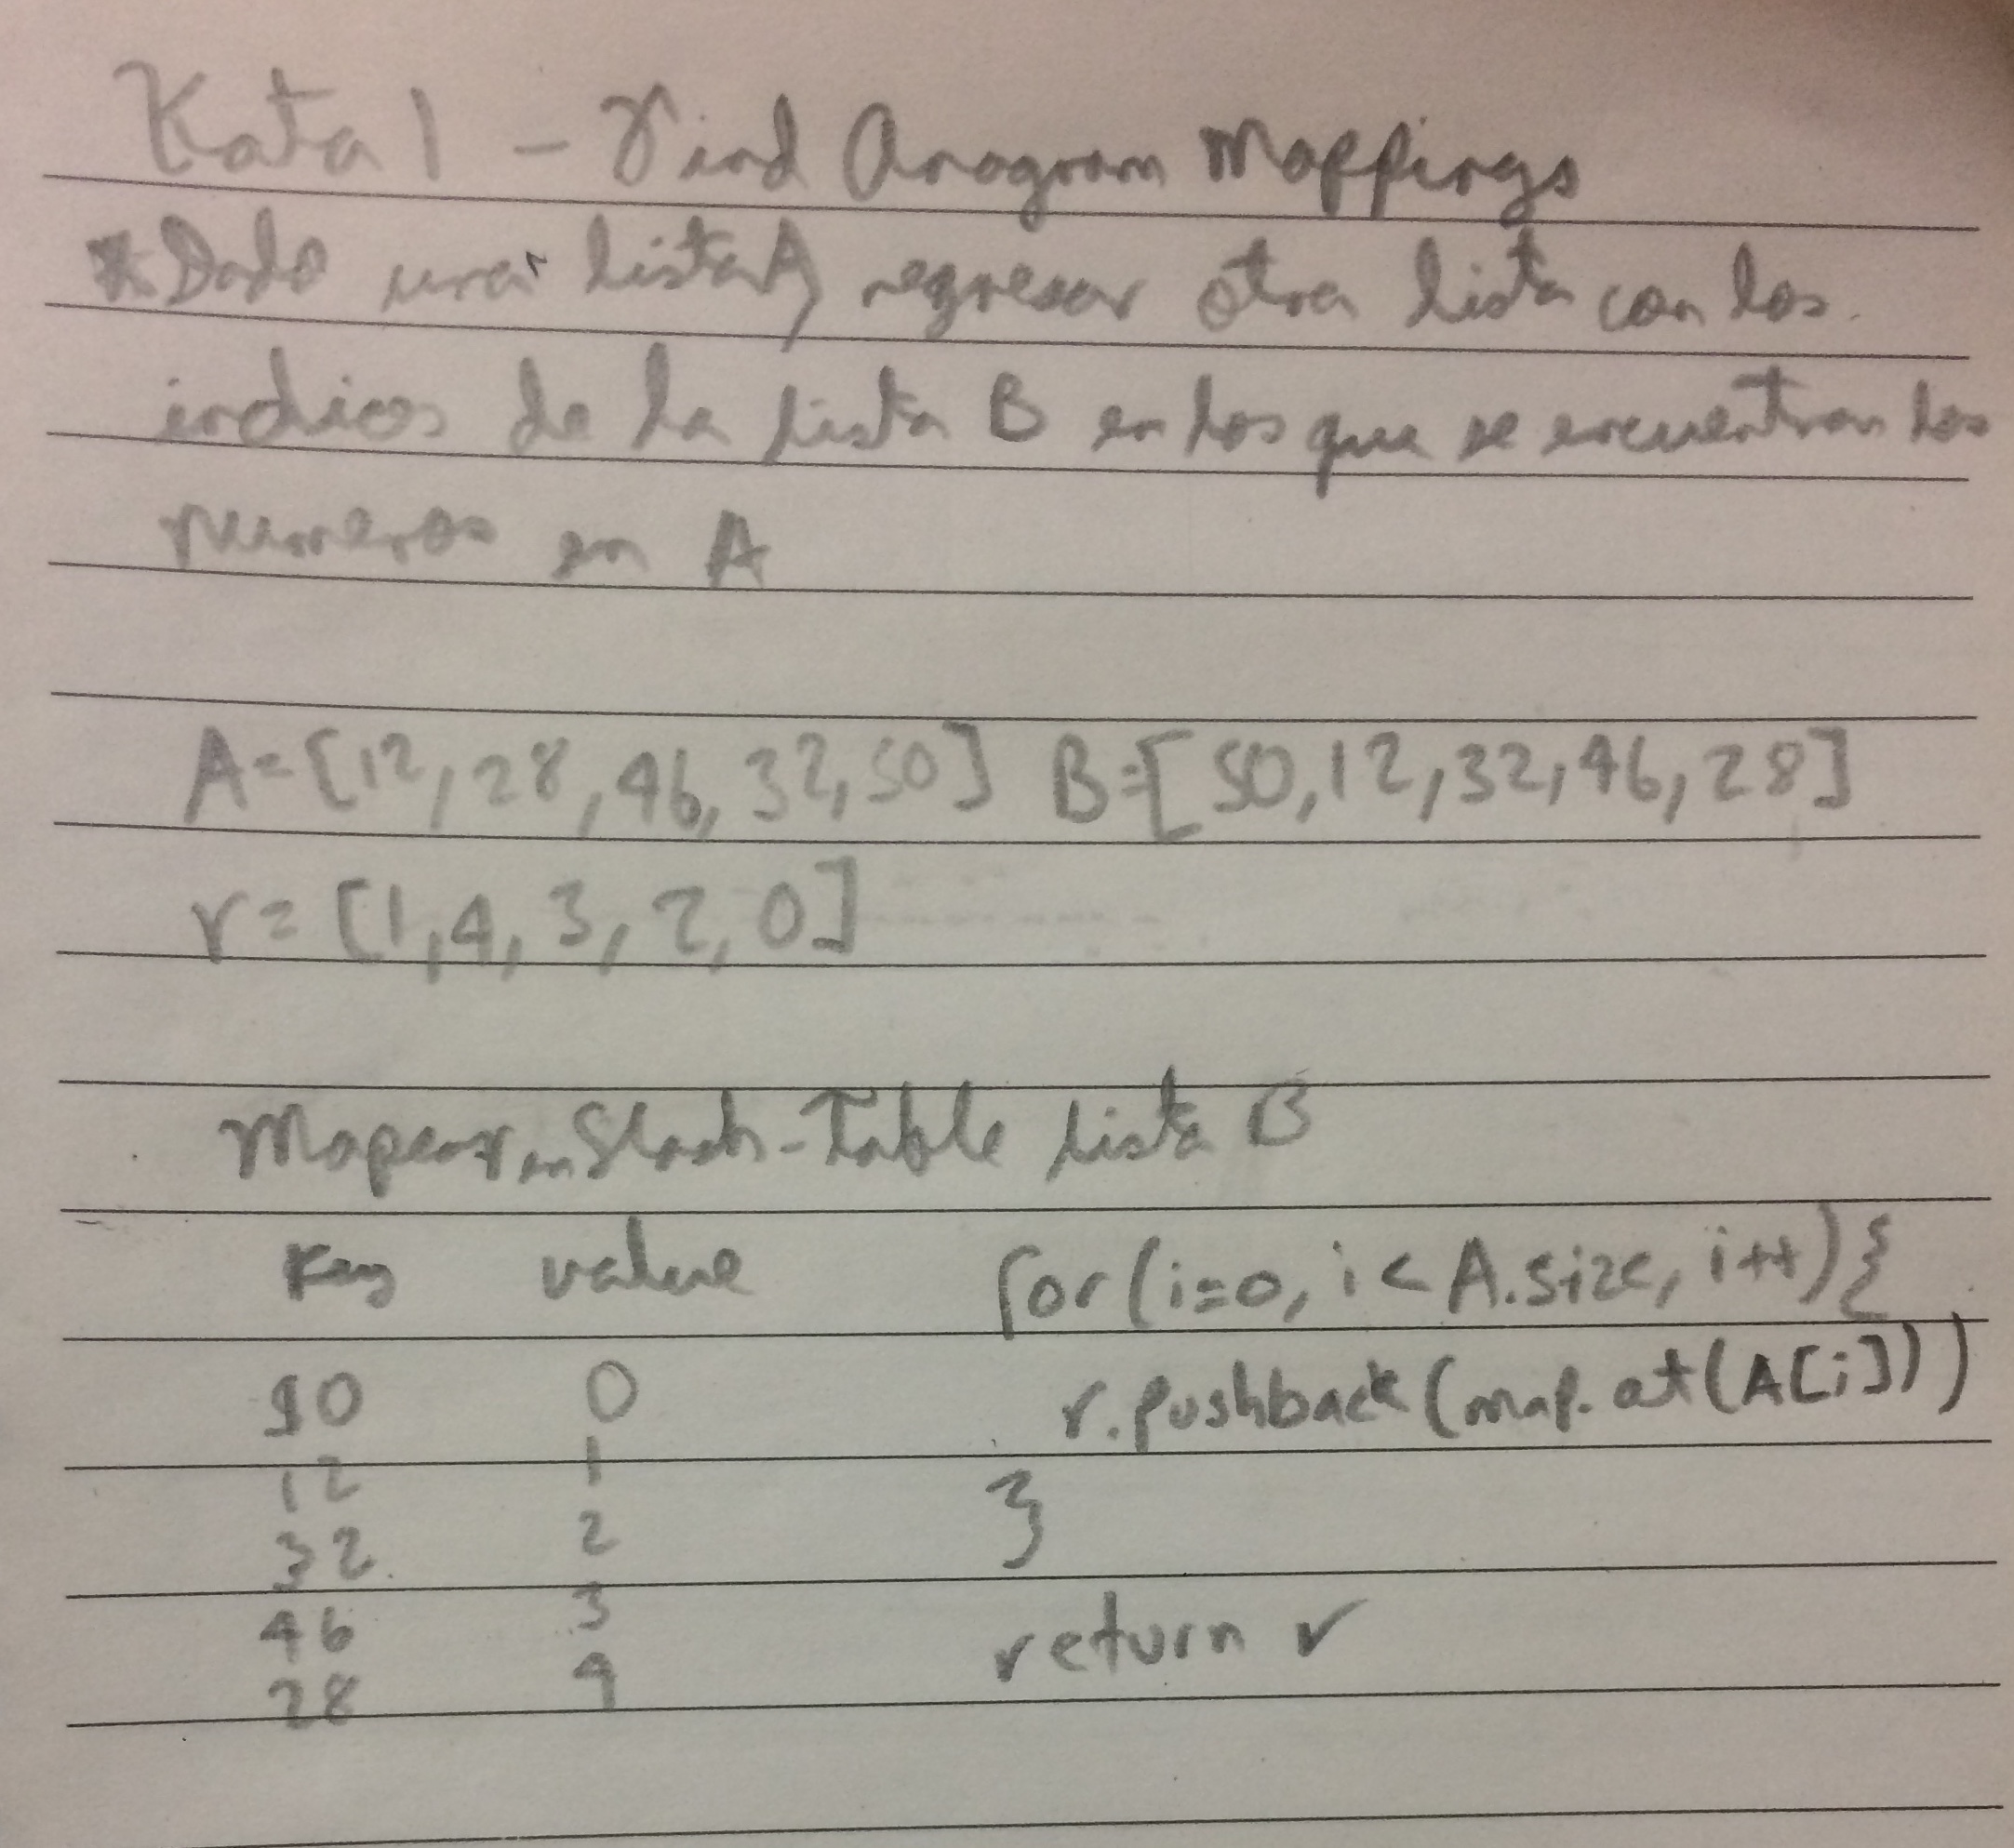 Kata 1 - Find Anagram Mappings
* Dado una lista A, regresar otra lista con los
indices de la lista B en los que se encuentran los
numeros en A
A=[12,28,46,32,50] B=[50,12,32,46,28]
r=[1,4,3,2,0]
Mapear en Hash-Table lista B
Key value for(i=0, i<A.size, i++){
0 r.pushback(map.at(A[i]))
12 1
32 2 }
46 3
28 4 return r